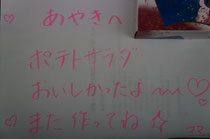 ♡ あやきへ
ポテトサラダ
おいしかったよ〜〜♡
♡ また作ってね☆